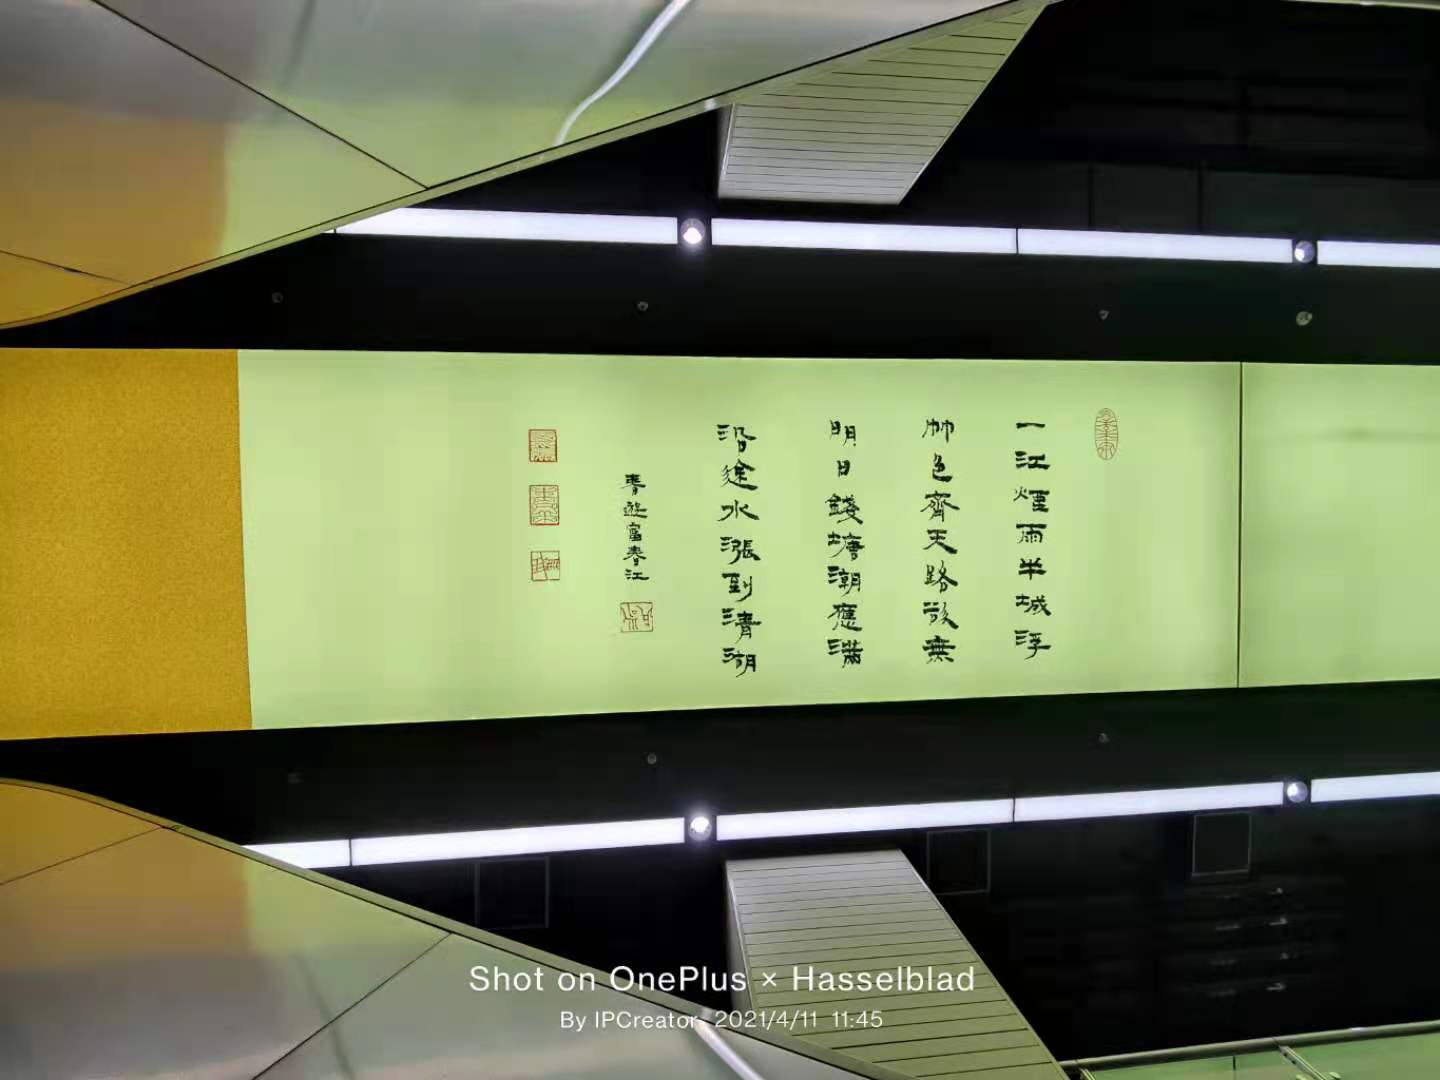 一江煙雨半城浮
艸色齊天路欲無
明日錢塘潮應滿
沿途水漲到清湖
春遊富春江
Shot on OnePlus × Hasselblad
By IPCreator 2021/4/11 11:45